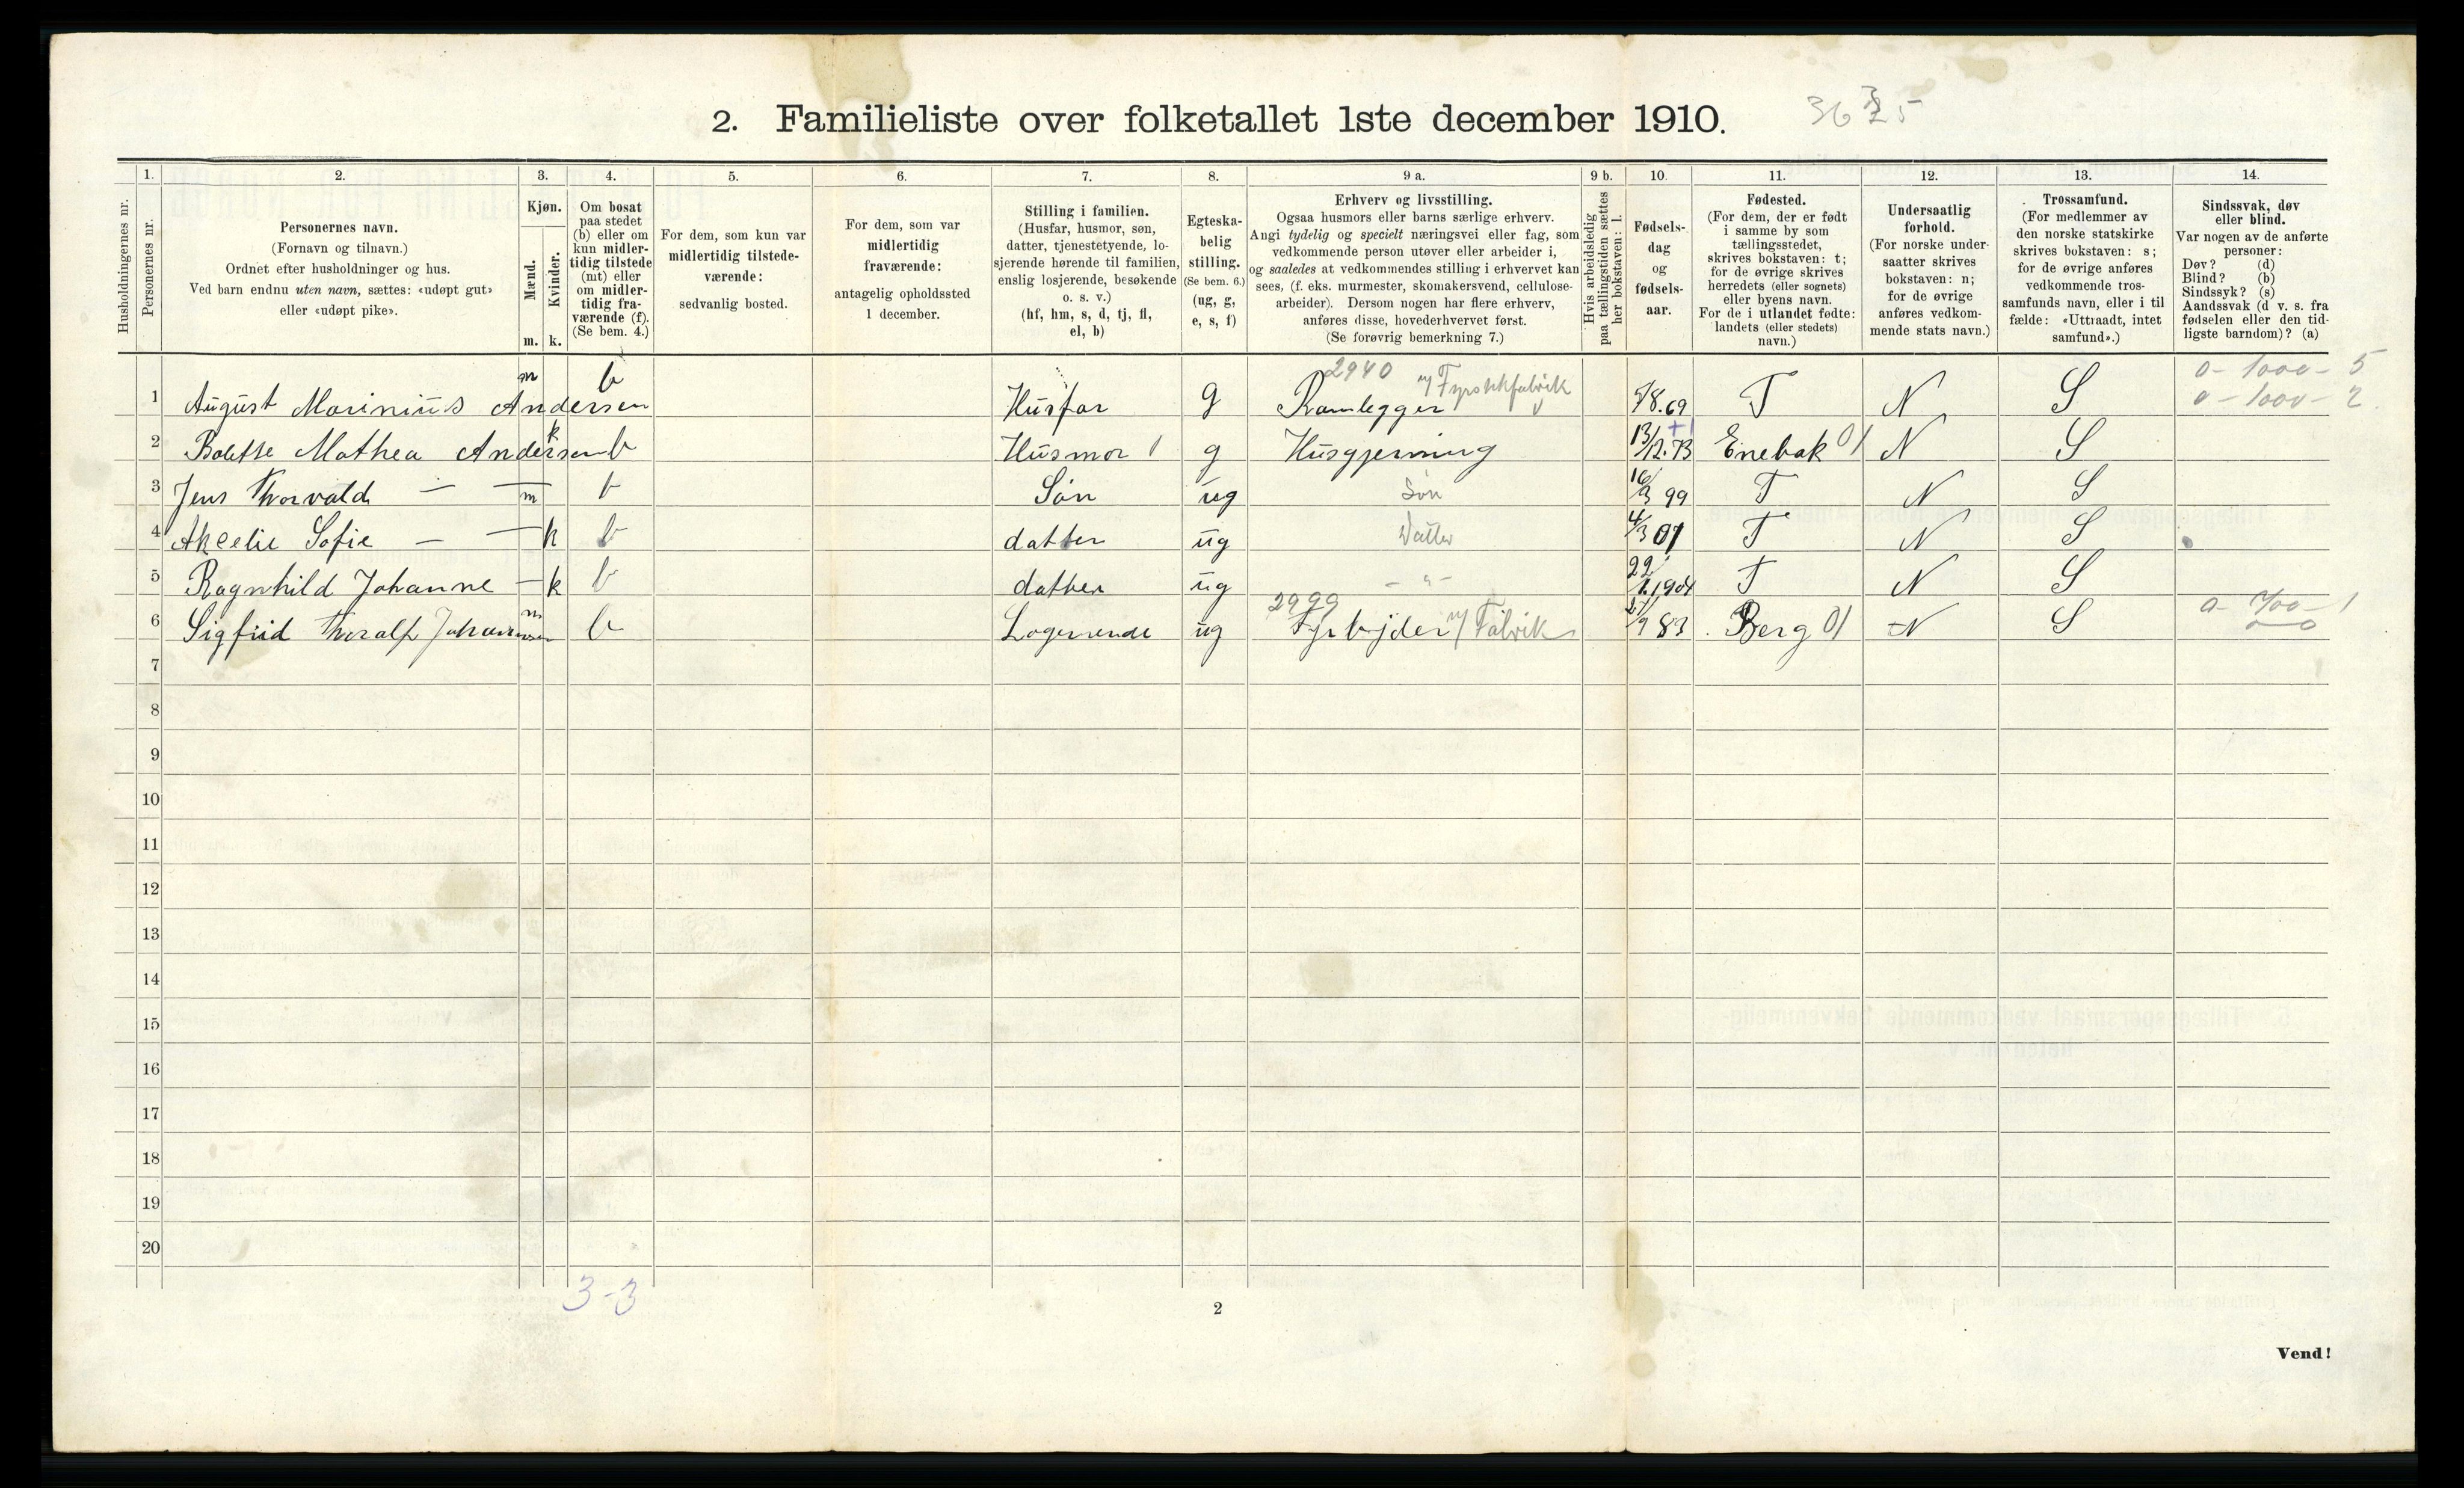 2. Familieliste over folketallet 1ste december 1910.
Husholdningernes nr.
1.
Personernes nr.
2.
Personernes navn.
(Fornavn og tilnavn.)
Ordnet efter husholdninger og hus.
Ved barn endnu uten navn, sættes: «udøpt gut»
eller «udøpt pike».
3.
Kjøn.
Mænd.
Kvinder.
m. k.
4.
Om bosat
paa stedet
(b) eller om
kun midler-
tidig tilstede
(mt) eller
om midler-
tidig fra-
værende (f).
(Se bem. 4.)
5.
For dem, som kun var
midlertidig tilstede-
værende:
sedvanlig bosted.
6.
For dem, som var
midlertidig
fraværende:
antagelig opholdssted
1 december.
7.
Stilling i familien.
(Husfar, husmor, søn,
datter, tjenestetyende, lo-
sjerende hørende til familien,
enslig losjerende, besøkende
o. s. v.)
(hf, hm, s, d, tj, fl,
el, b)
8.
Egteska-
belig
stilling.
(Se bem. 6.)
(ug, g,
e, s, f)
9 a.
Erhverv og livsstilling.
Ogsaa husmors eller barns særlige erhverv.
Angi tydelig og specielt næringsvei eller fag, som
vedkommende person utøver eller arbeider i,
og saaledes at vedkommendes stilling i erhvervet kan
sees, (f. eks. murmester, skomakersvend, cellulose-
arbeider). Dersom nogen har flere erhverv,
anføres disse, hovederhvervet først.
(Se forøvrig bemerkning 7.)
9 b.
Hvis arbeidsledig
paa tællingstiden sættes
her bokstaven: l.
10.
Fødsels-
dag
og
fødsels-
aar.
11.
Fødested.
(For dem, der er født
i samme by som
tællingsstedet,
skrives bokstaven: t;
for de øvrige skrives
herredets (eller sognets)
eller byens navn.
For de i utlandet fødte:
landets (eller stedets)
navn.)
12.
Undersaatlig
forhold.
(For norske under-
saatter skrives
bokstaven: n;
for de øvrige
anføres vedkom-
mende stats navn.)
13.
Trossamfund.
(For medlemmer av
den norske statskirke
skrives bokstaven: s;
for de øvrige anføres
vedkommende tros-
samfunds navn, eller i til
fælde: «Uttraadt, intet
samfund».)
14.
Sindssvak, døv
eller blind.
Var nogen av de anførte
personer:
Døv? (d)
Blind? (b)
Sindssyk? (s)
Aandssvak (d v. s. fra
fødselen eller den tid-
ligste barndom)? (a)
1 August Marinius Andersen m b Husfar g 2940 Ramlegger v/ Fyrstikfabrik 7/8.69 T N S 0-1000-5
0-1000-2
2 Bolette Mathea Andersen k b Husmor g Husgjerning 13/12.73 Enebak 01 N S
3 Jens Thorvald — — m b Søn ug Søn 16/3 99 T N S
4 Sofie — — k b datter ug Datter 4/3 01 T N S
5 Ragnhild Johanne — k b datter ug — " — 22/1.1904 T N S
6 Sigfrid Thoralf Johannesen m b Logerende ug 2999 v/ Fabrik 83 Berg 01 N S 0-700-1
7
8
9
10
11
12
13
14
15
16
17
18
19
20
3-3
2
Vend!